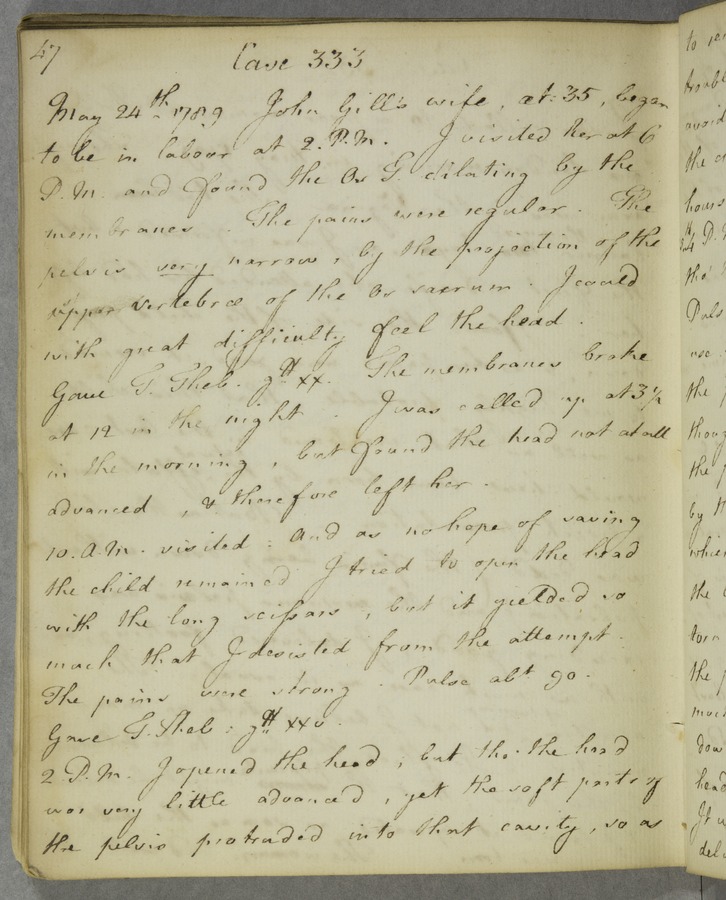 47 Case 333
May 24th 1789 John Gill's wife, æt: 35, began
to be in labour at 2. P.M. I visited her at 6
P.M. and found the Os T. dilating by the
membranes. The pains were regular. The
pelvis very narrow, by the projection of the
upper vertebræ of the Os sacrum. I could
with great difficulty feel the head.
Gave T. Theb. gtt xx. The membranes broke
at 12 in the night. I was called up at 3½
in the morning, but found the head not at all
advanced, & therefore left her.
10. A.M. visited: and as no hope of saving
the child remained I tried to open the head
with the long scissars, but it yielded so
much that I desisted from the attempt.
The pains were strong. Pulse abt 90.
Gave T. Theb: gtt xxv.
2. P.M. I opened the head, but tho' the head
was very little advanced, yet the soft parts of
the pelvis protruded into that cavity, so as